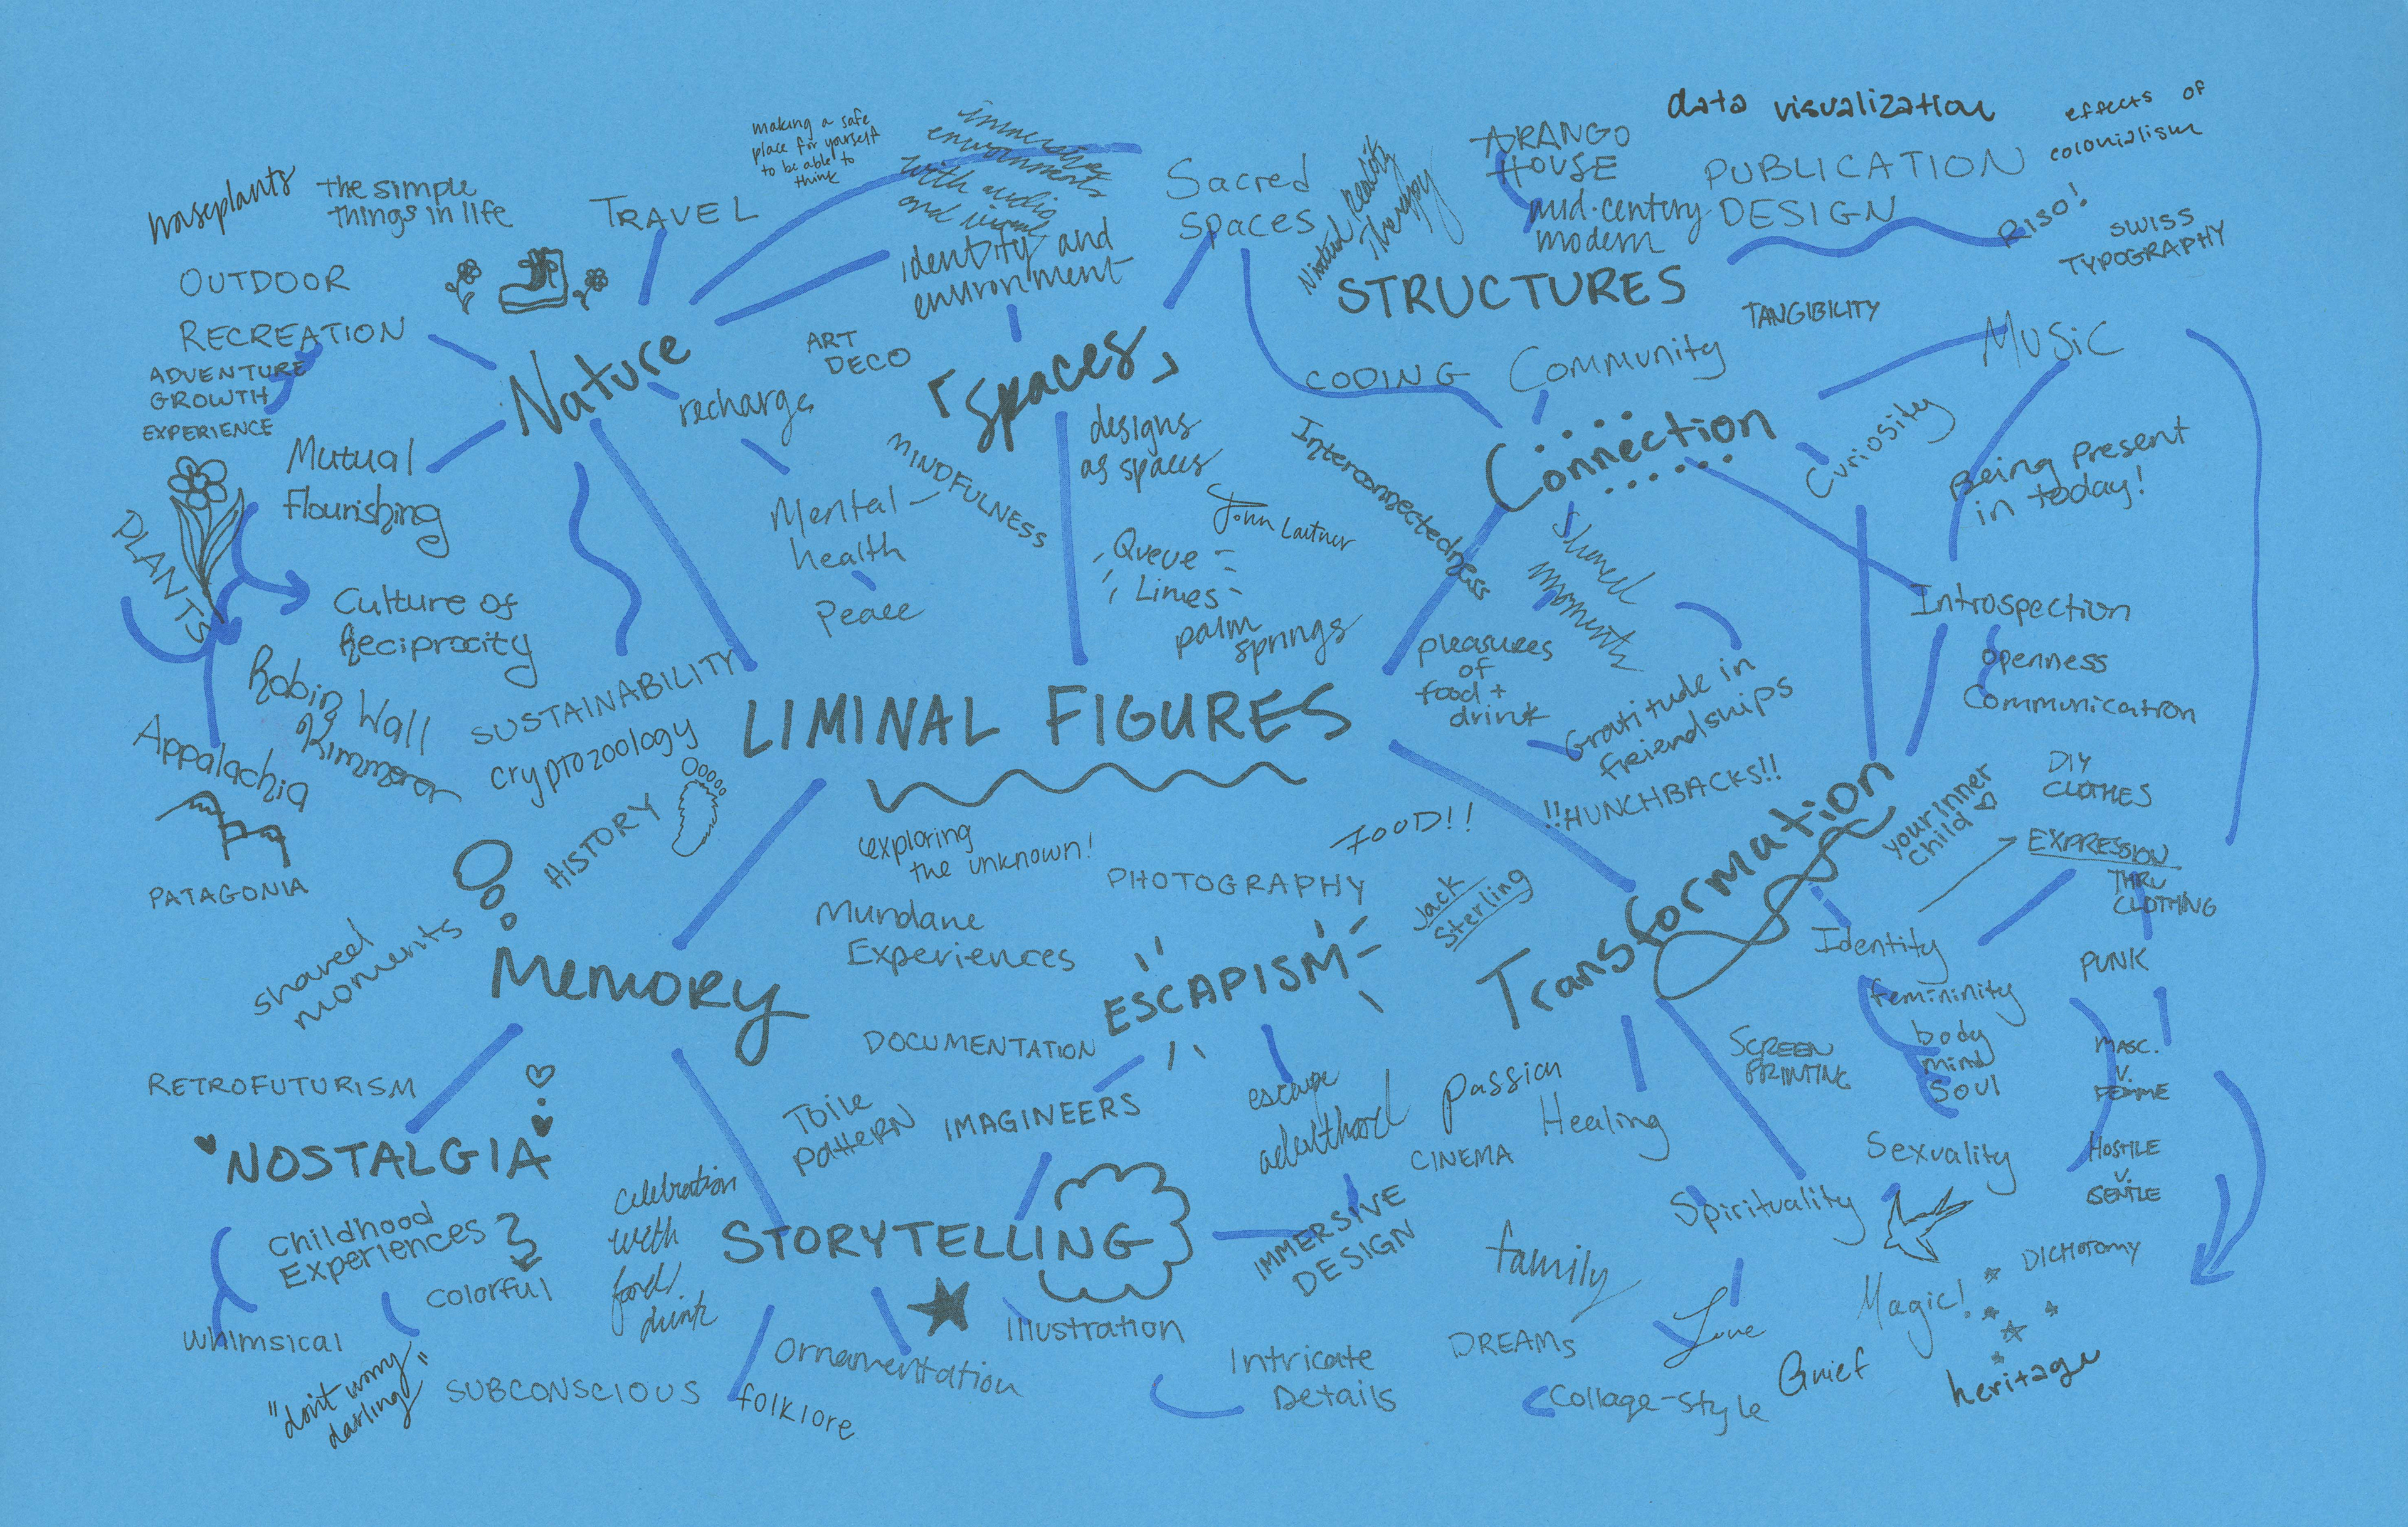 data visualization
effects of
colonialism
making a safe
place for yourself
to be able to
think
immersive
environments
with audio
and visual
ARANGO
HOUSE
mid-century
modern
PUBLICATION
DESIGN
RISO!
SWISS
TYPOGRAPHY
houseplants
the simple
things in life
TRAVEL
Sacred
spaces
Virtual Reality
Therapy
identity and
environment
STRUCTURES
TANGIBILITY
OUTDOOR
RECREATION
ADVENTURE
GROWTH
EXPERIENCE
Nature
ART
DECO
recharge
"Spaces,
CODING
Community
MUSIC
Connection
Curiosity
Being present
in today!
Mutual
flourishing
PLANTS
Mental
health
MINDFULNESS
Peace
designs
as spaces
John Lautner
Queue
Limes
palm
springs
Interconnectedness
Shared
moments
Introspection
openness
Communication
Culture of
Reciprocity
Robin Wall
Kimmerer
SUSTAINABILITY
cryptozoology
LIMINAL FIGURES
pleasures
of
food +
drink
Gratitude in
friendships
!!HUNCHBACKS!!
Appalachia
PATAGONIA
HISTORY
(exploring
the unknown!
FOOD!!
PHOTOGRAPHY
Jack
Sterling
Transformation
your inner
child
DIY
CLOTHES
EXPRESSION
THRU
CLOTHING
shared
moments
MEMORY
Mundane
Experiences
ESCAPISM
Identity
PUNK
femininity
body
mind
soul
MASC.
V.
FEMME
SCREEN
PRINTING
DOCUMENTATION
RETROFUTURISM
"NOSTALGIA"
Toile
pattern
IMAGINEERS
escape
adulthood
passion
Healing
CINEMA
Sexuality
HOSTILE
V.
GENTLE
Childhood
Experiences
celebration
with
food/
drink
STORYTELLING
IMMERSIVE
DESIGN
family
Spirituality
DICHOTOMY
colorful
whimsical
Illustration
Love
Magic!
"don't worry
darling"
SUBCONSCIOUS
Ornamentation
folklore
Intricate
Details
DREAMS
Collage-style
Grief
heritage